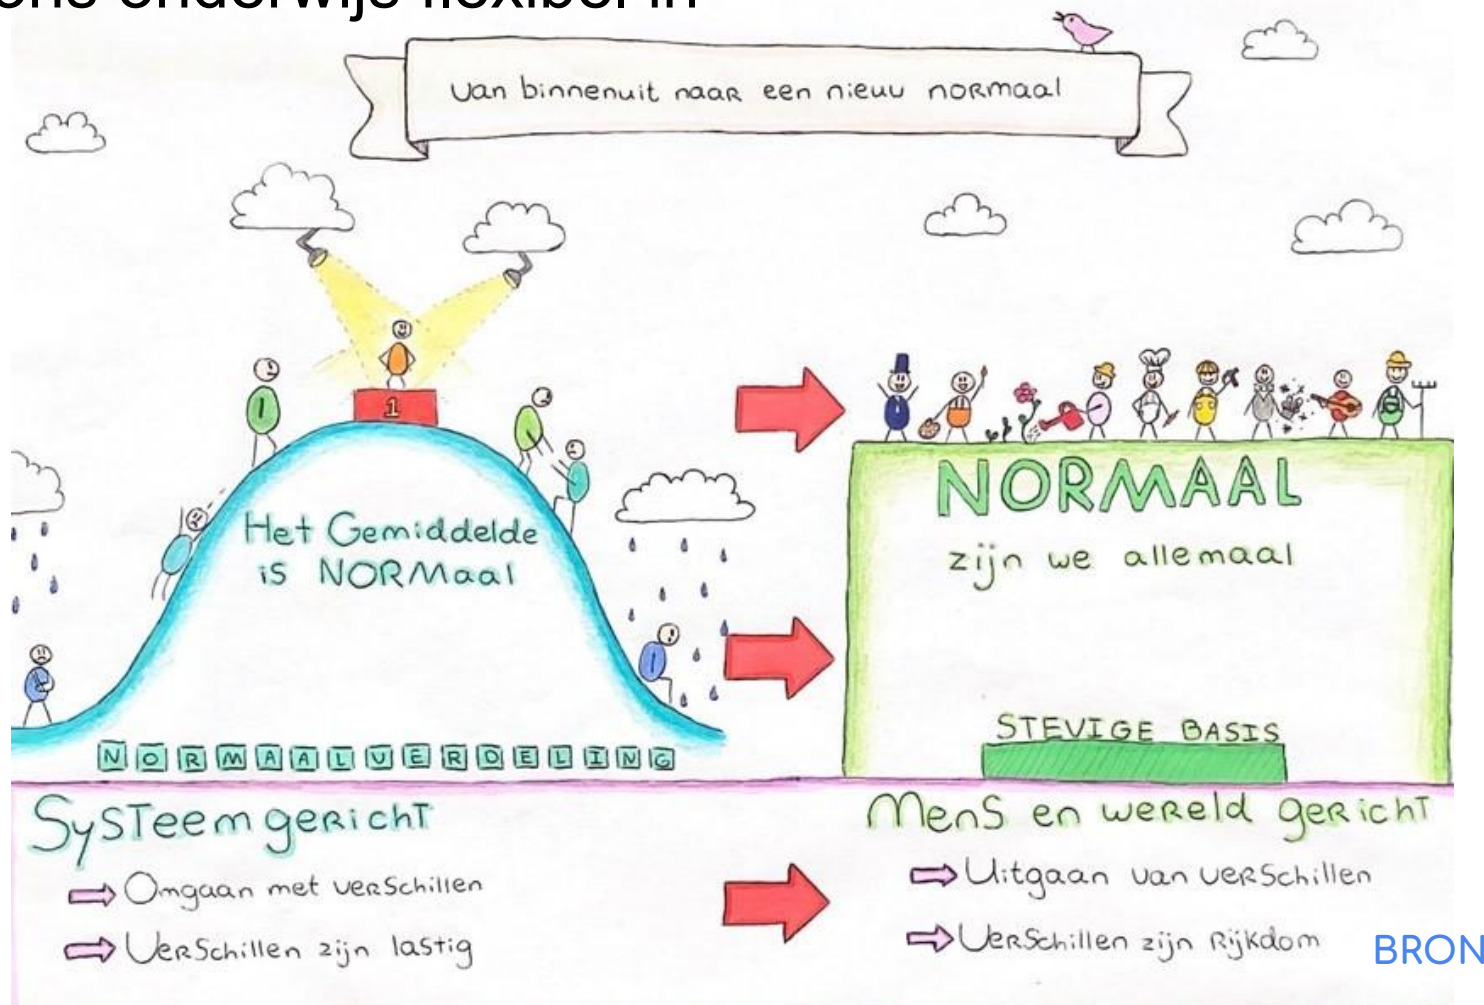 ons onderwijs flexibel in
van binnenuit naar een nieuw normaal
1
Het Gemiddelde
is NORMaal
NORMAALVERDELING
NORMAAL
zijn we allemaal
STEVIGE BASIS
Systeemgericht
Omgaan met verschillen
Verschillen zijn lastig
Mens en wereld gericht
Uitgaan van verschillen
Verschillen zijn Rijkdom
BRON